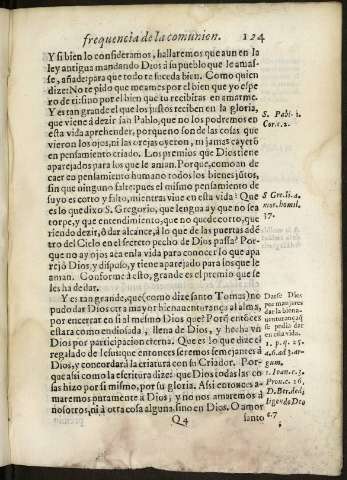 frequencia de la comunion. 124
Y si bien lo consideramos, hallaremos que aun en la
ley antigua mandando Dios à su pueblo que le amas-
se, añade: para que todo te suceda bien. Como quien
dize: No te pido que me ames por el bien que yo espe-
ro de ti: sino por el bien que tu recibiras en amarme.
Y es tan grande el que los justos reciben en la gloria,
que viene à dezir san Pablo, que no los podremos en
esta vida aprehender, porque no son de las cosas que
vieron los ojos, ni las orejas oyeron, ni jamas cayerõ
en pensamiento criado. Los premios que Dios tiene
aparejados para los que le aman. Porque, como an de
caer en pensamiento humano todos los bienes jutos,
sin que ninguno falte: pues el mismo pensamiento de
suyo es corto y falto, mientras viue en esta vida? Que
es lo que dixo S. Gregorio, que lengua ay que no sea
torpe, y que entendimiento, que no quede corto, que
riendo dezir, ò dar alcance, à lo que de las puertas adẽ
tro del Cielo en el secreto pecho de Dios passa? Por-
que no ay ojos acà en la vida para conocer lo que apa
rejò Dios, y dispuso, y tiene aparejado para los que le
aman. Conforme à esto, grande es el premio que se
les ha de dar.
Y es tan grande, que (como dize santo Tomas) no
pudo dar Dios otra mayor bienauenturança al alma,
por encerrar en si al mesmo Dios que? Porq̃ entonces
estarà como endiosada, llena de Dios, y hecha vn
Dios por participacion eterna. Que es lo que dize el
regalado de Iesus: que entonces seremos semejantes à
Dios, y concordarà la criatura con su Criador. Por-
que assi como la escritura dize: que Dios todas las co
sas hizo por si mismo, por su gloria. Assi entonces a-
maremos puramente à Dios, y no nos amaremos à
nosotros, ni à otra cosa alguna, sino en Dios. O amor
Q4 santo
S. Pabl. 1.
Cor. c. 2.
S Gre. li. 2.
mor. homil.
37.
Darse Dios
por manjares
dar la biena-
uenturança q̃
se pedia dar
en esta vida.
1. p. q. 25.
a. 6. ad 3. ar-
gum.
1. Ioan. c. 3.
Prou. c. 16.
D. Ber. de di-
ligendo Deo
c. 7